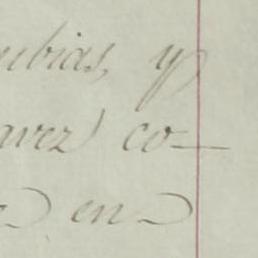 ubias, y
avez co-
en